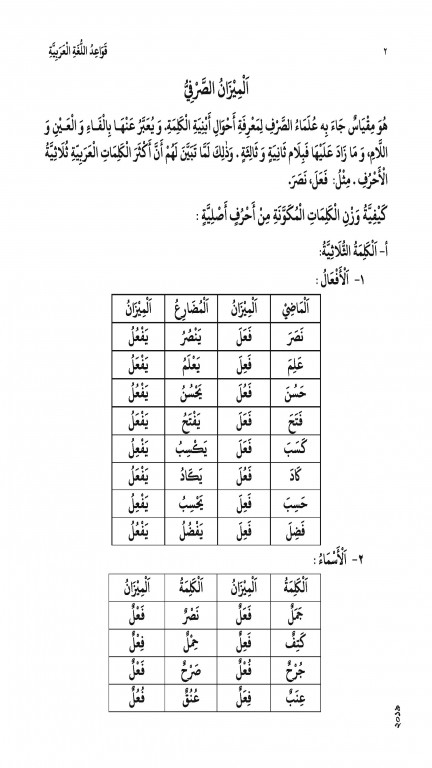 ٢ قَوَاعِدُ اللُّغَةِ الْعَرَبِيَّةِ
اَلْمِيْزَانُ الصَّرْفِيُّ
هُوَ مِقْيَاسٌ جَاءَ بِهِ عُلَمَاءُ الصَّرْفِ لِمَعْرِفَةِ أَحْوَالِ أَبْنِيَةِ الْكَلِمَةِ. وَ يُعَبَّرُ عَنْهَا بِالْفَاءِ وَ الْعَيْنِ وَ
اللَّامِ، وَ مَا زَادَ عَلَيْهَا فَبِلَامٍ ثَانِيَةٍ وَ ثَالِثَةٍ . وَذٰلِكَ لَمَّا تَبَيَّنَ لَهُمْ أَنَّ أَكْثَرَ الْكَلِمَاتِ الْعَرَبِيَّةِ ثُلَاثِيَّةُ
الْأَحْرُفِ . مِثْلُ: فَعَلَ، نَصَرَ.
كَيْفِيَّةُ وَزْنِ الْكَلِمَاتِ الْمُكَوَّنَةِ مِنْ أَحْرُفٍ أَصْلِيَّةٍ :
أ- اَلْكَلِمَةُ الثُّلَاثِيَّةُ:
١- اَلْأَفْعَالُ :
اَلْمَاضِيْ اَلْمِيْزَانُ اَلْمُضَارِعُ اَلْمِيْزَانُ
نَصَرَ فَعَلَ يَنْصُرُ يَفْعُلُ
عَلِمَ فَعِلَ يَعْلَمُ يَفْعَلُ
حَسُنَ فَعُلَ يَحْسُنُ يَفْعُلُ
فَتَحَ فَعَلَ يَفْتَحُ يَفْعَلُ
كَسَبَ فَعَلَ يَكْسِبُ يَفْعِلُ
كَادَ فَعُلَ يَكَادُ يَفْعَلُ
حَسِبَ فَعِلَ يَحْسِبُ يَفْعِلُ
فَضِلَ فَعِلَ يَفْضُلُ يَفْعُلُ
٢- اَلْأَسْمَاءُ :
اَلْكَلِمَةُ اَلْمِيْزَانُ اَلْكَلِمَةُ اَلْمِيْزَانُ
جَمَلٌ فَعَلٌ نَصْرٌ فَعْلٌ
كَتِفٌ فَعِلٌ حِمْلٌ فِعْلٌ
جُرْحٌ فُعْلٌ صَرْحٌ فَعْلٌ
عِنَبٌ فِعَلٌ عُنُقٌ فُعُلٌ